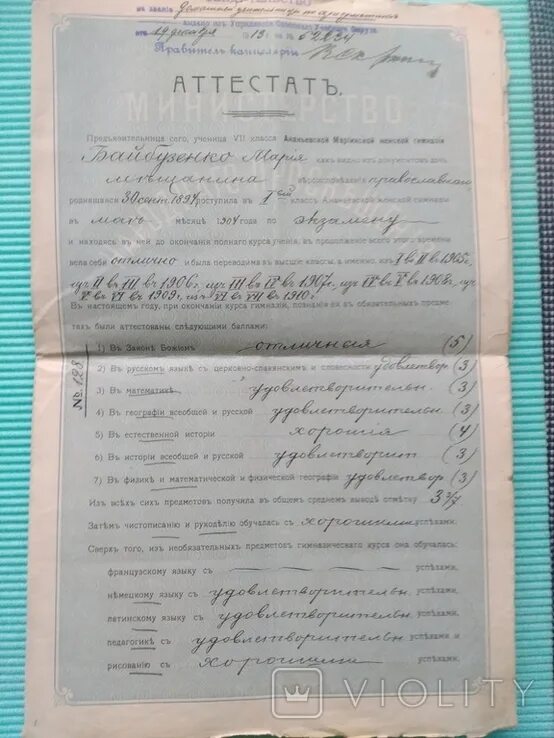 въ званіи Домашней учительницы по ариѳметикѣ
выдано изъ Управленія Одесскаго Учебнаго Округа
отъ 19 декабря 1913 г. за № 62834
Правитель канцеляріи
АТТЕСТАТЪ.
МИНИСТЕРСТВО
Предъявительница сего, ученица VII класса Ананьевской Маріинской женской гимназіи
Байбузенко Марія какъ видно изъ документовъ дочь
мѣщанина вѣроисповѣданія православнаго
родившаяся 30 сент 1894 поступила въ I класс Ананьевской женской гимназіи
въ маѣ мѣсяцѣ 1904 года по экзамену
и находясь въ ней до окончанія полнаго курса ученія, въ продолженіе всего этого времени
вела себя отлично и была переводима въ высшіе классы, а именно, изъ I въ II въ 1905 г.
изъ II въ III въ 1906 г. изъ III въ IV въ 1907 г. изъ IV въ V въ 1908 г. изъ
V въ VI въ 1909 г. изъ VI въ VII въ 1910 г.
Въ настоящемъ году, при окончаніи курса гимназіи, познанія ея въ обязательныхъ предме-
тахъ были аттестованы слѣдующими баллами:
1) Въ Законѣ Божіемъ отличныя (5)
2) Въ русскомъ языкѣ съ церковно-славянскимъ и словесности удовлетвор (3)
№ 128
3) Въ математикѣ удовлетворительн (3)
4) Въ географіи всеобщей и русской удовлетворительн (3)
5) Въ естественной исторіи хорошія (4)
6) Въ исторіи всеобщей и русской удовлетворит (3)
7) Въ физикѣ и математической и физической географіи удовлетвор (3)
Изъ всѣхъ сихъ предметовъ получила въ общемъ среднемъ выводѣ отмѣтку 3 3/7
Затѣмъ чистописанію и рукодѣлію обучалась съ хорошими успѣхами.
Сверхъ того, изъ необязательныхъ предметовъ гимназическаго курса она обучалась:
французскому языку съ — — — — успѣхами.
нѣмецкому языку съ удовлетворительн успѣхами,
латинскому языку съ удовлетворительн успѣхами,
педагогикѣ съ удовлетворительн успѣхами и
рисованію съ хорошими успѣхами.
VIOLITY